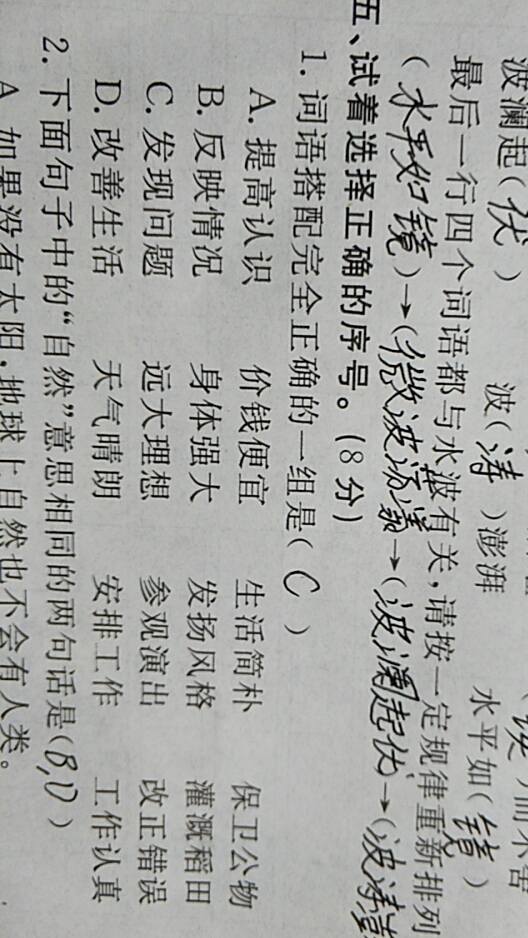 而不舍
波澜起(伏) 波(涛)澎湃 水平如(镜)
最后一行四个词语都与水波有关,请按一定规律重新排列
(水平如镜)→(微波荡漾→(波澜起伏)→(波涛澎
五、试着选择正确的序号。(8分)
1.词语搭配完全正确的一组是( C )
A.提高认识 价钱便宜 生活简朴 保卫公物
B.反映情况 身体强大 发扬风格 灌溉稻田
C.发现问题 远大理想 参观演出 改正错误
D.改善生活 天气晴朗 安排工作 工作认真
2.下面句子中的“自然”意思相同的两句话是(B,D)
A.如果没有太阳,地球上自然也不会有人类。